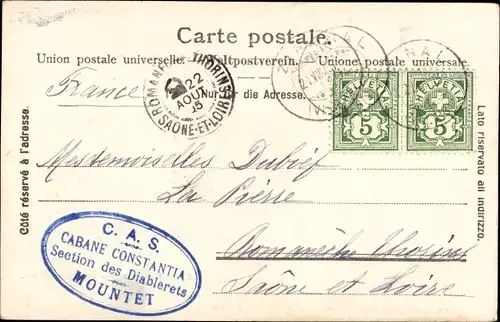 Carte postale.
Union postale universelle. Weltpostverein. Unione postale universale.
France
Nur für die Adresse.
ROMANÈCHE-THORINS
22
AOUT
05
SAONE-ET-LOIRE
ZINAL
HELVETIA HELVETIA
5 5
Côté réservé à l'adresse.
Lato riservato all indirizzo.
Mesdemoiselles Dubief
La Pierre
Romanèche Thorins
Saône et Loire
C. A. S.
CABANE CONSTANTIA
Section des Diablerets
MOUNTET